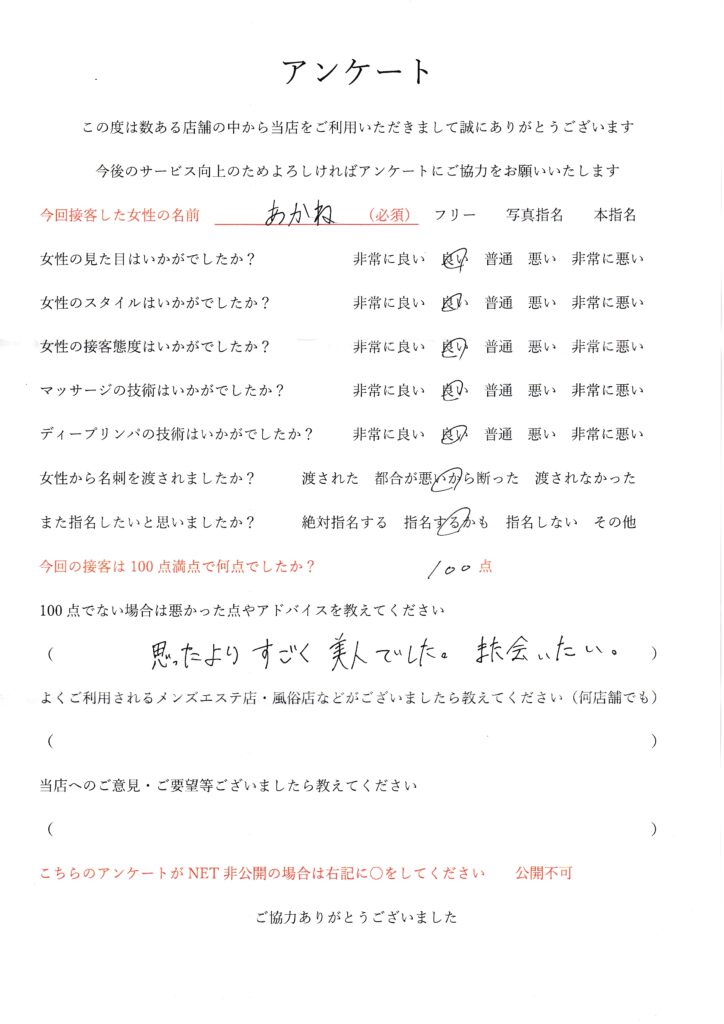 アンケート
この度は数ある店舗の中から当店をご利用いただきまして誠にありがとうございます
今後のサービス向上のためよろしければアンケートにご協力をお願いいたします
今回接客した女性の名前 あかね (必須) フリー 写真指名 本指名
女性の見た目はいかがでしたか? 非常に良い 良い 普通 悪い 非常に悪い
女性のスタイルはいかがでしたか? 非常に良い 良い 普通 悪い 非常に悪い
女性の接客態度はいかがでしたか? 非常に良い 良い 普通 悪い 非常に悪い
マッサージの技術はいかがでしたか? 非常に良い 良い 普通 悪い 非常に悪い
ディープリンパの技術はいかがでしたか? 非常に良い 良い 普通 悪い 非常に悪い
女性から名刺を渡されましたか? 渡された 都合が悪いから断った 渡されなかった
また指名したいと思いましたか? 絶対指名する 指名するかも 指名しない その他
今回の接客は 100 点満点で何点でしたか? 100 点
100 点でない場合は悪かった点やアドバイスを教えてください
( 思ったより すごく 美人でした。 また会いたい。 )
よくご利用されるメンズエステ店・風俗店などがございましたら教えてください(何店舗でも)
( )
当店へのご意見・ご要望等ございましたら教えてください
( )
こちらのアンケートが NET 非公開の場合は右記に〇をしてください 公開不可
ご協力ありがとうございました